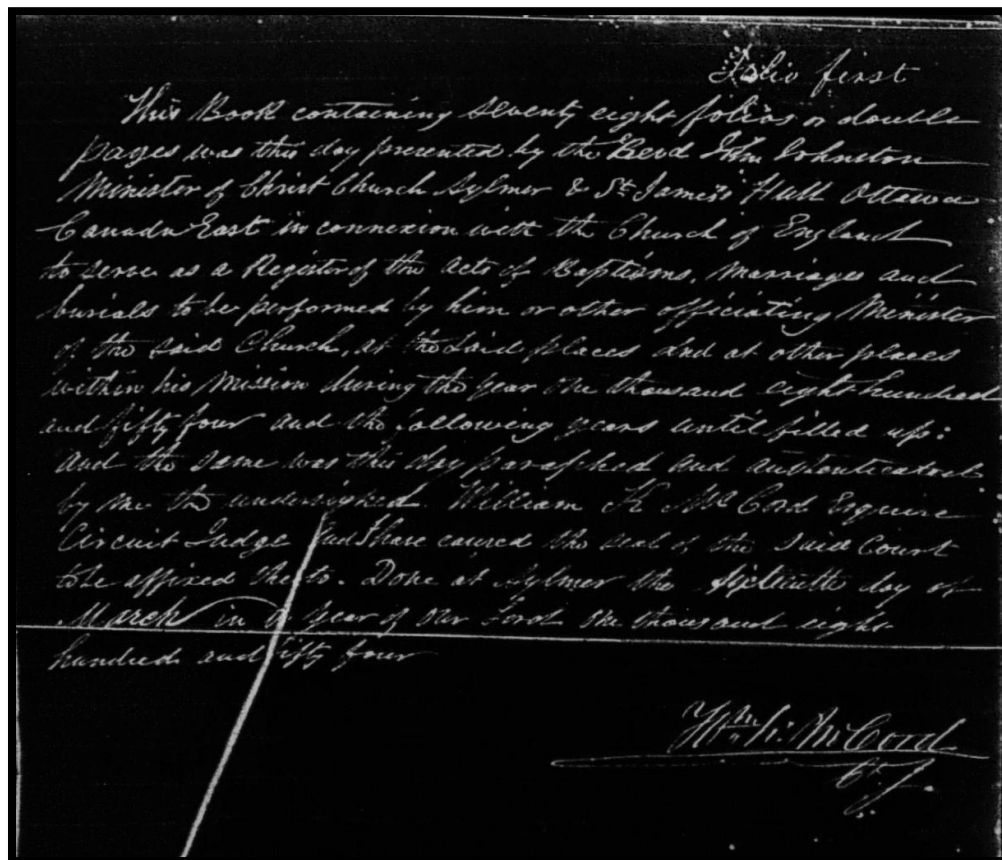 Folio first
This Book containing seventy eight folios or double
pages was this day presented by the Revd John Johnston
Minister of Christ Church Aylmer & St James's Hull Ottawa
Canada East in connexion with the Church of England
to serve as a Register of the acts of Baptisms, Marriages and
burials to be performed by him or other officiating Minister
of the said Church, at the said places and at other places
within his Mission during the year one thousand eight hundred
and fifty four and the following years until filled up:
and the same was this day paraphed and authenticated
by me the undersigned William K. McCord Esquire
Circuit Judge and I have caused the seal of the said Court
to be affixed thereto. Done at Aylmer the sixteenth day of
March in the year of our Lord one thousand eight
hundred and fifty four
Wm. K. McCord
C. J.